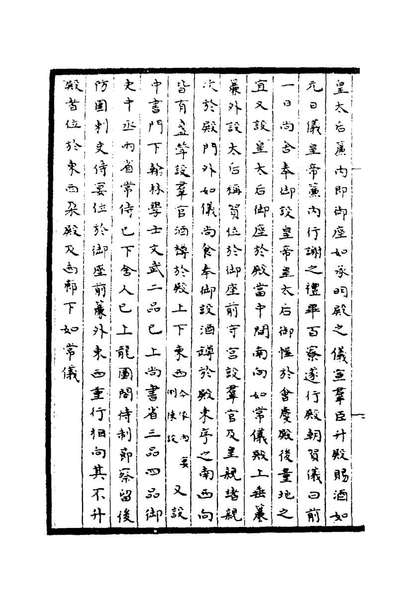 皇太后簾内即御座如承明殿之儀宣羣臣升殿賜酒如
元日儀皇帝簾内行謝之禮畢百寮遂行殿朝賀儀曰前
一日尚舍奉御設皇帝皇太后御幄於會慶殿後量地之
宜又設皇太后御座於殿當中間南向如常儀殿上垂簾
簾外設太后稱賀位於御座前守宮設羣官及皇親諸親
次於殿門外如儀尚食奉御設酒罇於殿東序之南西向
皆有坫等設羣官酒罇於殿上下東西 令依内要例陳設 又設
中書門下翰林學士文武二品已上尚書省三品四品御
史中丞内省常侍已下舍人已上龍圖閣待制節察留後
防團刺史侍宴位於御座前簾外東西重行相向其不升
殿者位於東西朵殿及兩廊下如常儀